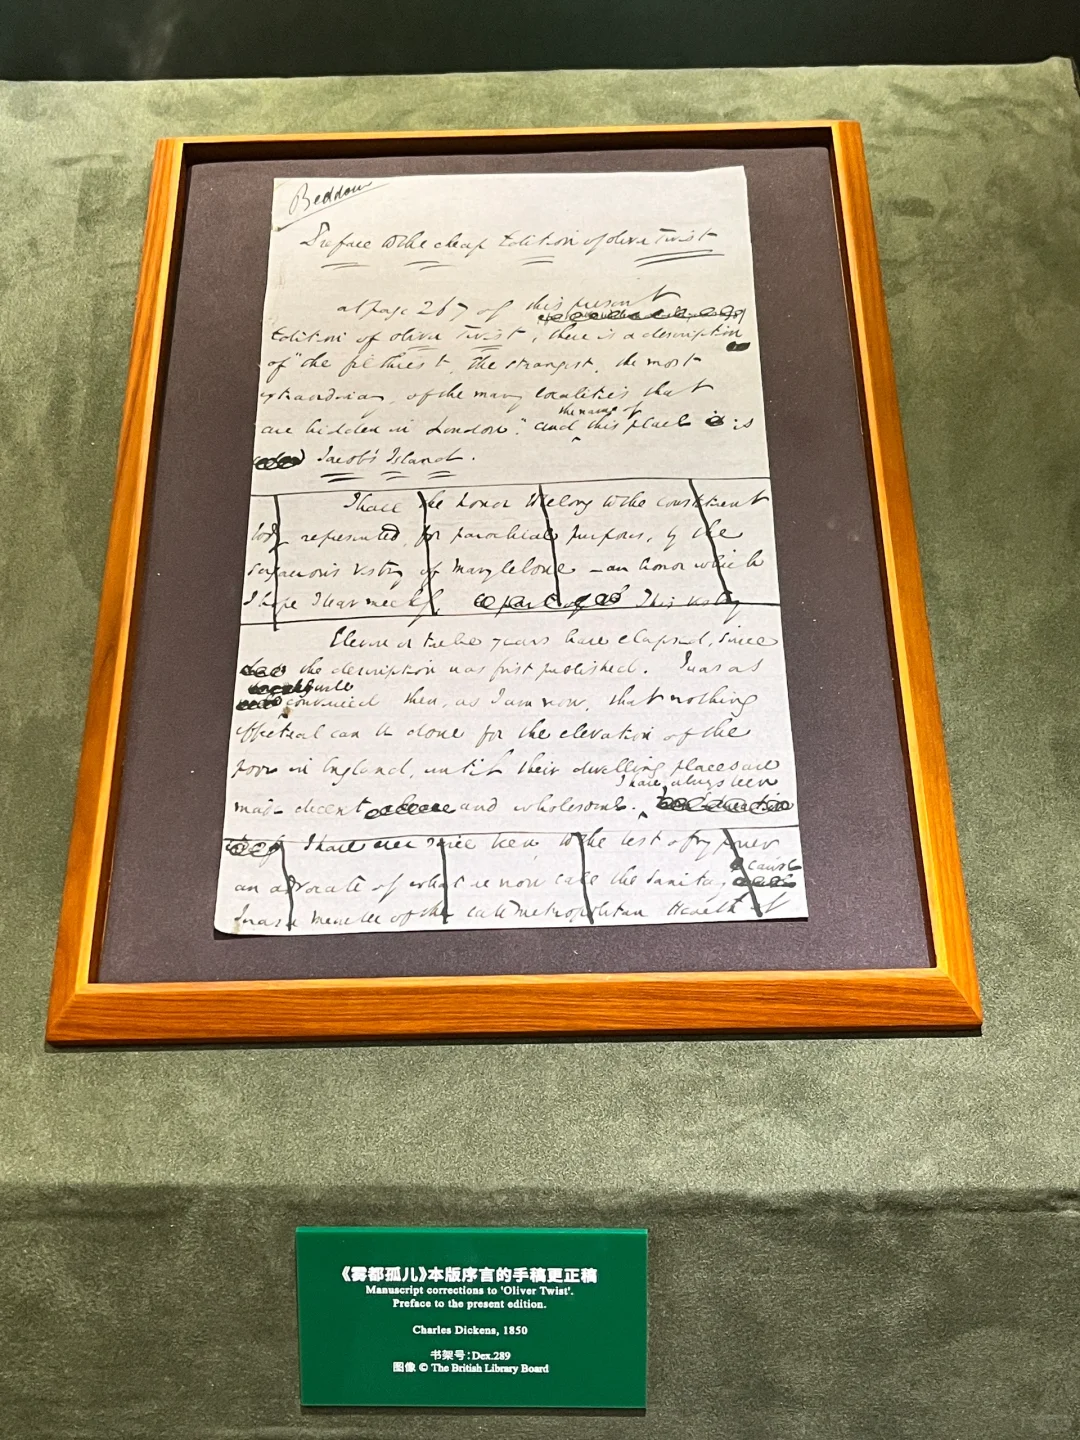 Beddow
Preface to the cheap Edition of Oliver Twist
at page 267 of this present
Edition of Oliver Twist, there is a description
of "the filthiest, the strangest, the most
extraordinary, of the many localities that
are hidden in London." and the name of this place is
Jacob's Island.
I have the honor to belong to the constituent
body represented, for parochial purposes, by the
vestry of Marylebone — an honor which
I hope I bear meekly. This vestry
Eleven or twelve years have elapsed, since
the description was first published. I was as
well convinced then, as I am now, that nothing
effectual can be done for the elevation of the
poor in England, until their dwelling places are
made decent and wholesome. I have always been
I have ever since been, to the best of my power
an advocate of what is now called the Sanitary cause
I was a member of the late Metropolitan Health of
《雾都孤儿》本版序言的手稿更正稿
Manuscript corrections to 'Oliver Twist'.
Preface to the present edition.
Charles Dickens, 1850
书架号：Dex.289
图像 © The British Library Board